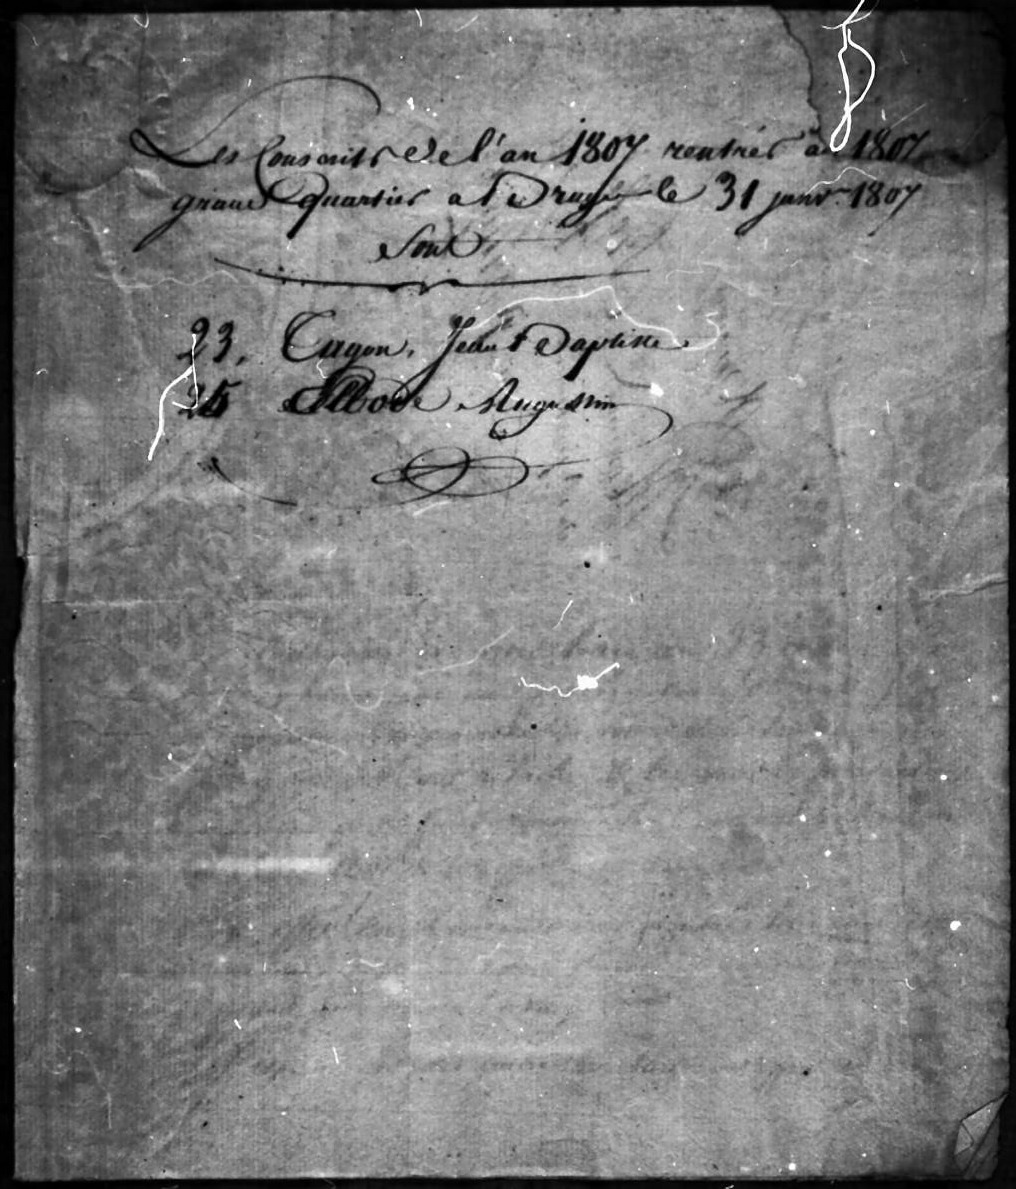 Les Conscrits de l'an 1807 rentrés au 1807
grand Quartier a le 31 janv. 1807
Sont
23, Jean Baptiste
25 Augustin